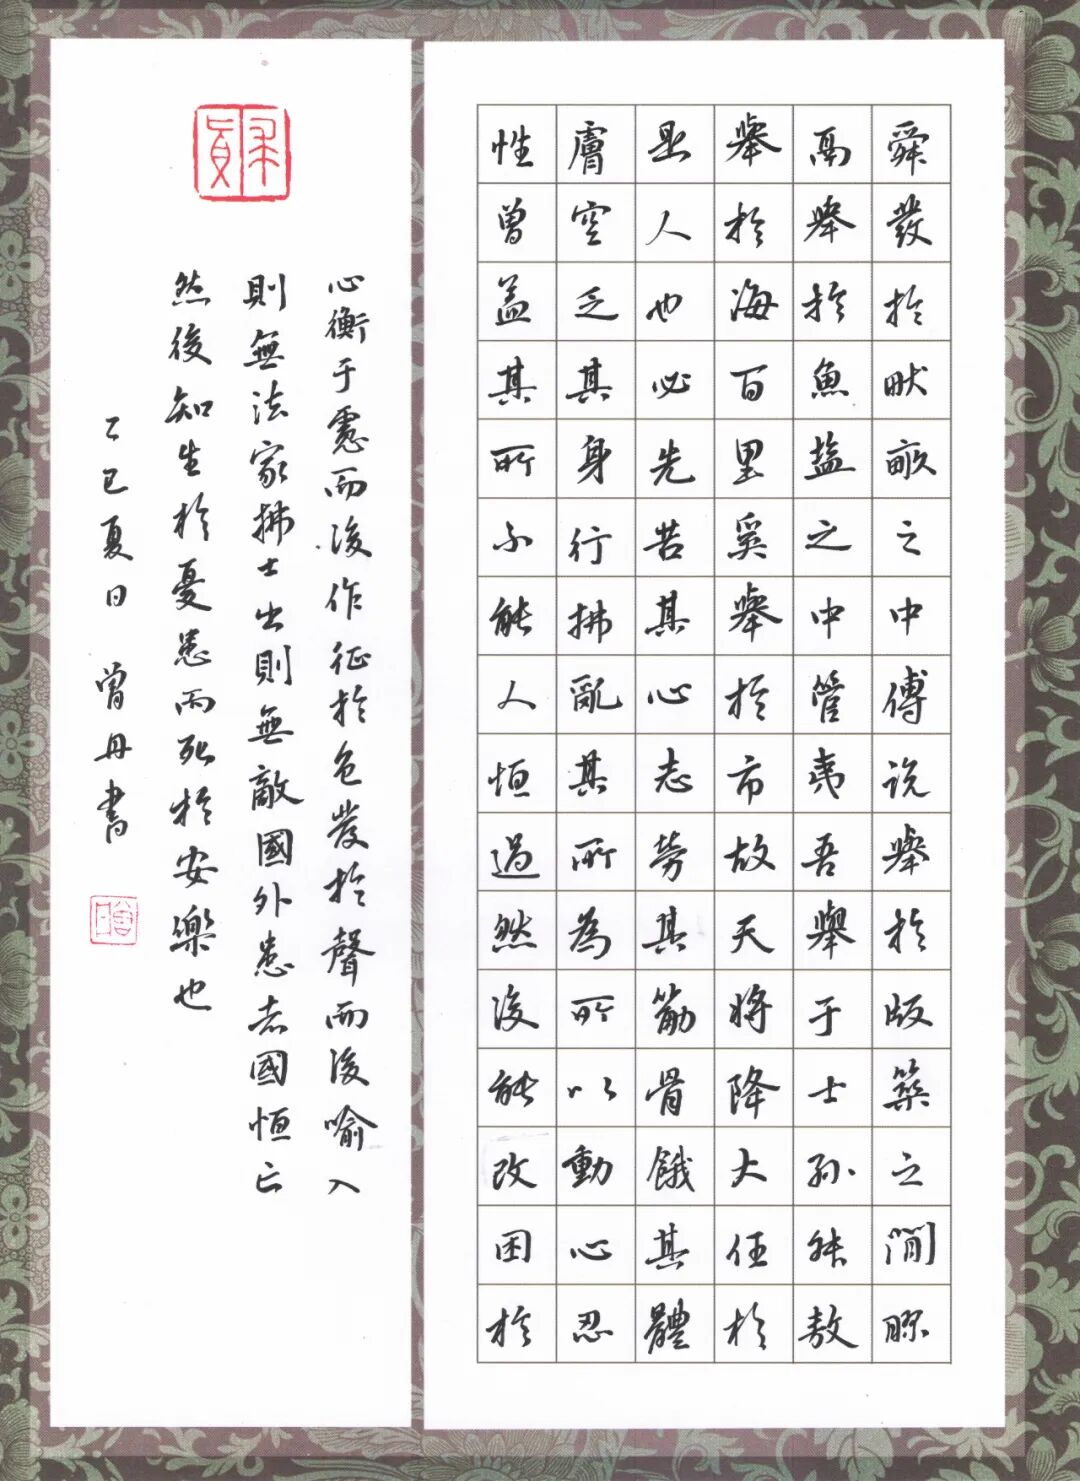 舜發於畎畝之中傅说舉於版築之間膠
鬲舉於魚盐之中管夷吾舉于士孙叔敖
舉於海百里奚舉於市故天将降大任於
是人也必先苦其心志劳其筋骨餓其體
膚空乏其身行拂亂其所為所以動心忍
性曾益其所不能人恒過然後能改困於
心衡于慮而後作征於色發於聲而後喻入
則無法家拂士出則無敵國外患者國恒亡
然後知生於憂患而死於安樂也
乙巳夏日 曾丹書